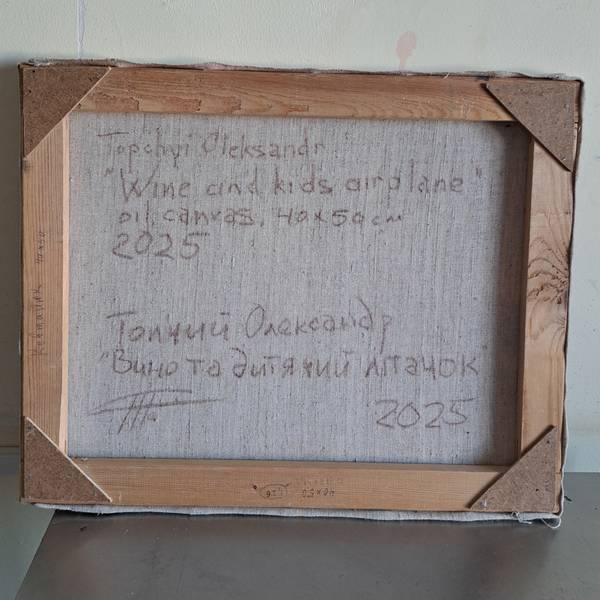 Topchyi Oleksandr
"Wine and kids airplane"
oil, canvas, 40x50 см
2025
Топчий Олександр
"Вино та дитячий літачок"
2025